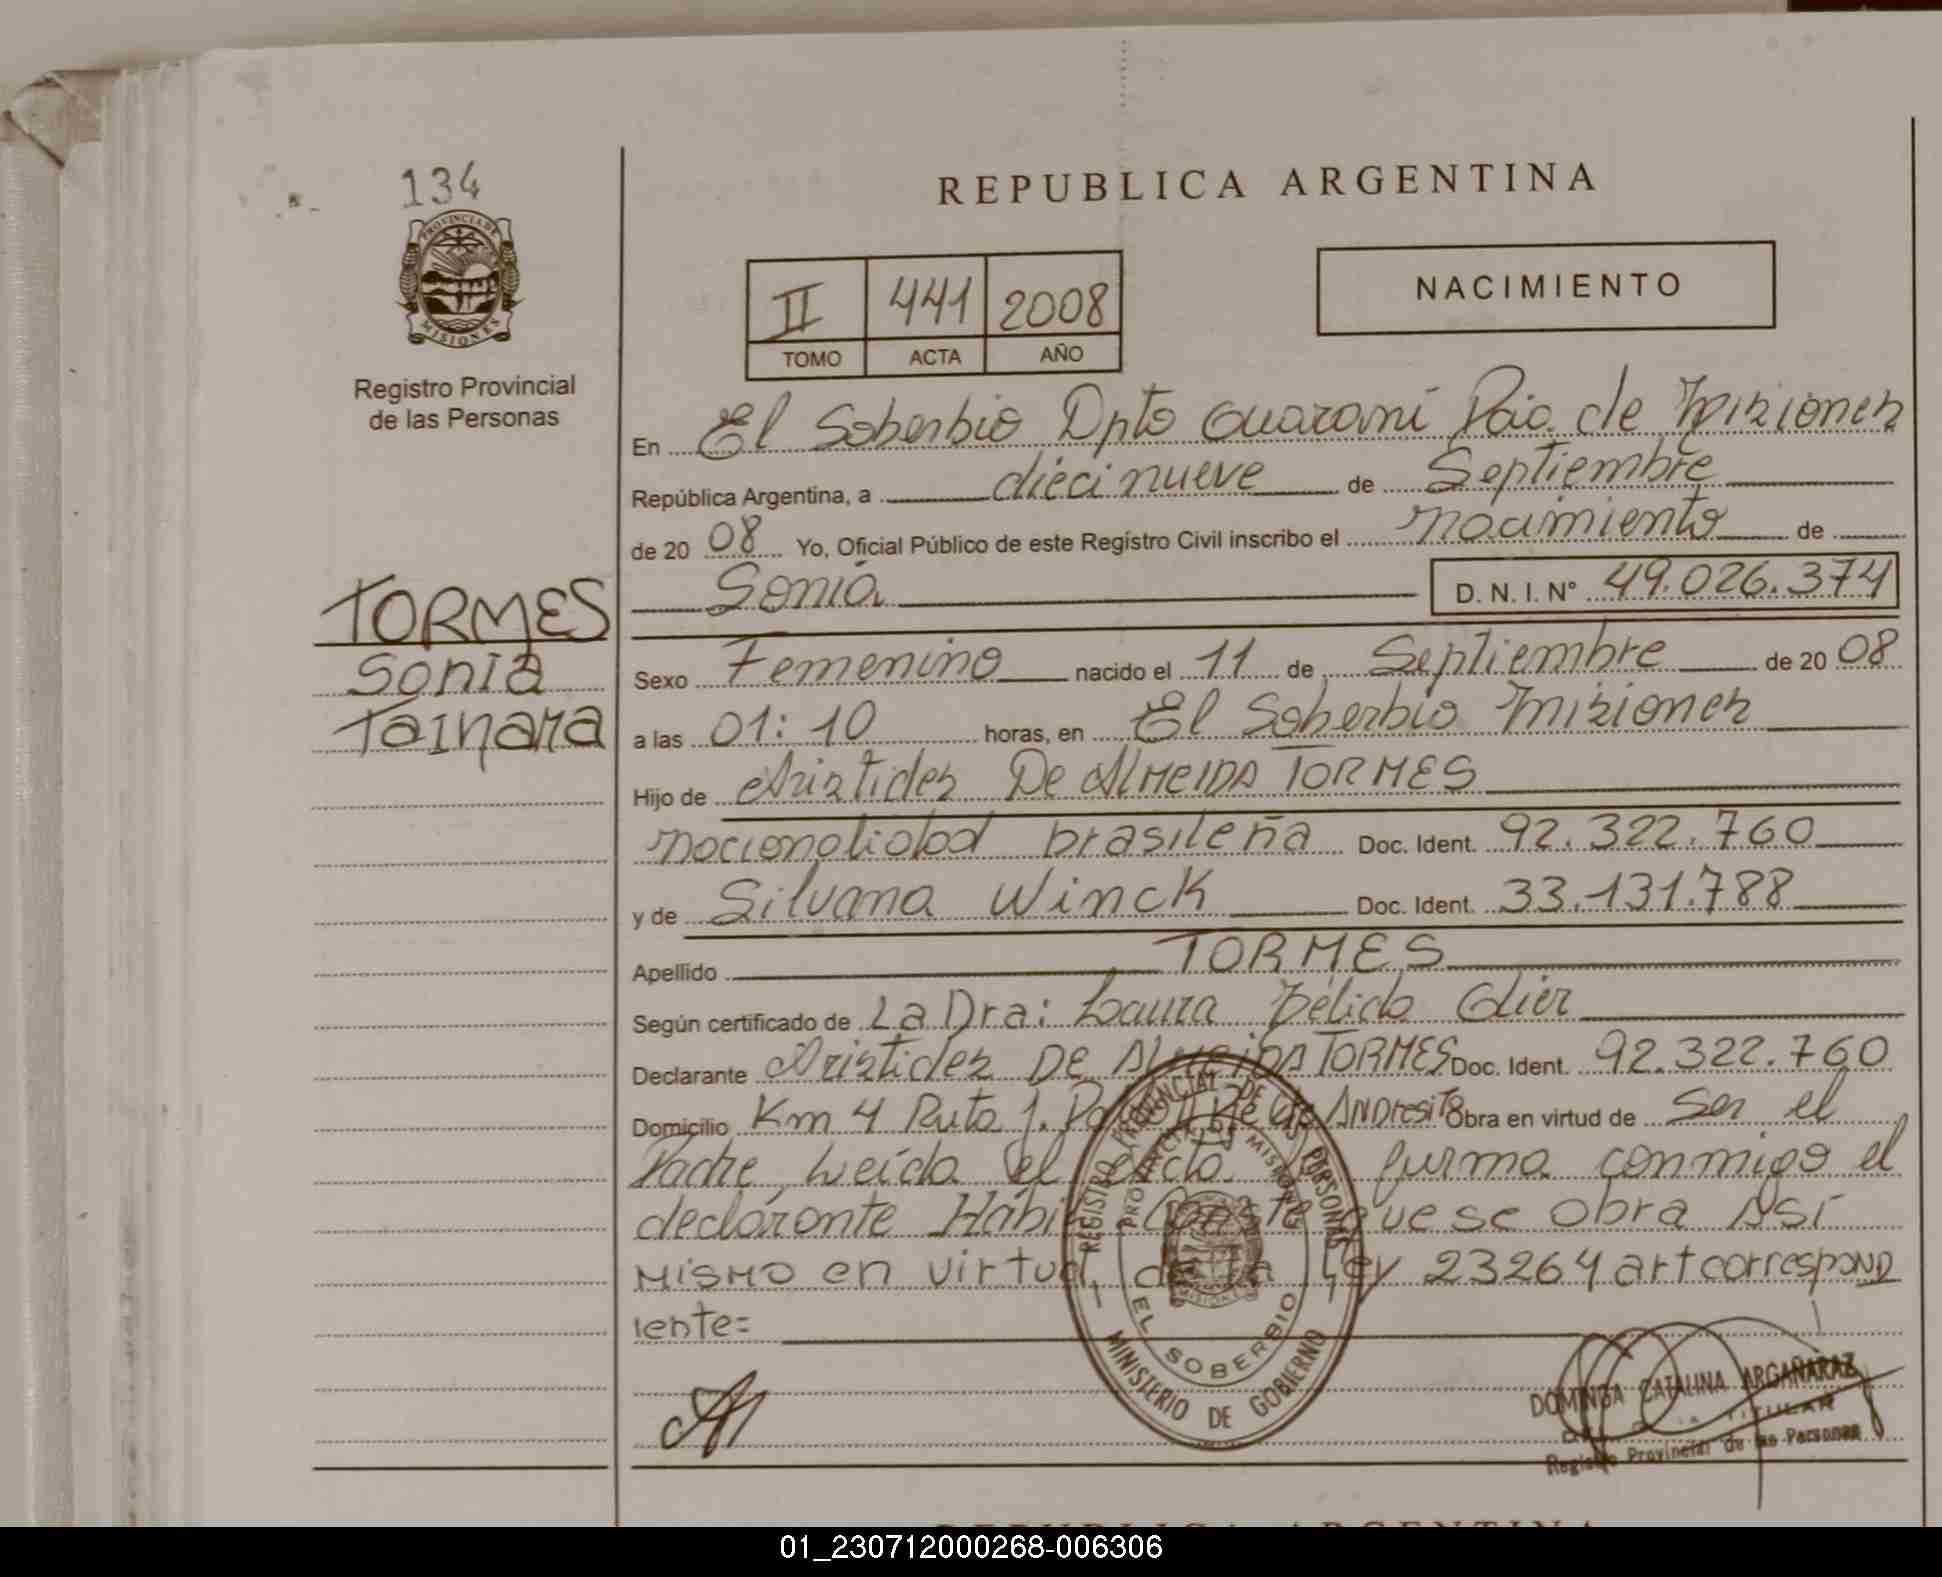 134
PROVINCIA DE
MISIONES
Registro Provincial
de las Personas
TORMES
Sonia
Tainara
REPUBLICA ARGENTINA
II 441 2008
TOMO ACTA AÑO
NACIMIENTO
En El Soberbio Dpto Guaraní Pcia. de Misiones
República Argentina, a diecinueve de Septiembre
de 20 08 Yo, Oficial Público de este Registro Civil inscribo el nacimiento de
Sonia D. N. I. N° 49.026.374
Sexo Femenino nacido el 11 de Septiembre de 20 08
a las 01:10 horas, en El Soberbio Misiones
Hijo de Aristides De ALMEIDA TORMES
nacionalidad brasileña Doc. Ident. 92.322.760
y de Silvana Winck Doc. Ident. 33.131.788
Apellido TORMES
Según certificado de La Dra: Laura
Declarante Aristides DE ALMEIDA TORMES Doc. Ident. 92.322.760
Domicilio Km 4 Ruta 1. ANDresito Obra en virtud de Ser el
Padre, Leída el acta firma conmigo el
declarante Hábil Conste que se obra ASí
MISMO en virtud, de la Ley 23264 art correspOND
iente=
REGISTRO PROVINCIAL DE LAS PERSONAS
PROVINCIA DE MISIONES
EL SOBERBIO
MINISTERIO DE GOBIERNO
DOMINGA CATALINA ARGAÑARAZ
TITULAR
Registro Provincial de las Personas
REPUBLICA ARGENTINA
01_230712000268-006306